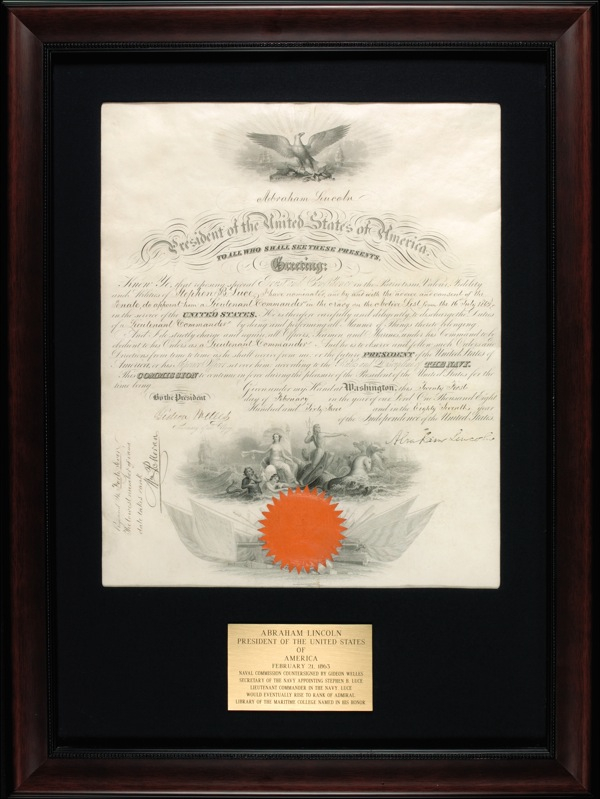 Abraham Lincoln
President of the United States of America,
TO ALL WHO SHALL SEE THESE PRESENTS,
Greeting:
Know Ye, that reposing special Trust and Confidence in the Patriotism, Valor, Fidelity
and Abilities of Stephen B. Luce, I have nominated and by and with the advice and consent of the
Senate do appoint him a Lieutenant Commander in the Navy on the Active List from the 16 July 1862,
in the service of the UNITED STATES. He is therefore carefully and diligently to discharge the duties
of a Lieutenant Commander by doing and performing all Manner of Things thereto belonging.
And I do strictly charge and require all Officers, Seamen and Marines under his Command to be
obedient to his Orders as a Lieutenant Commander And he is to observe and follow such Orders and
Directions from time to time as he shall receive from me, or the future PRESIDENT of the United States of
America, or his Superior Officer set over him, according to the Rules and Discipline of THE NAVY.
This COMMISSION to continue in force during the pleasure of the President of the United States for the
time being.
Given under my Hand at Washington, this Twenty First
day of February in the year of our Lord One Thousand Eight
Hundred and Sixty Three and in the Eighty Seventh year
of the Independence of the United States.
By the President
Gideon Welles
Abraham Lincoln
ABRAHAM LINCOLN
PRESIDENT OF THE UNITED STATES
OF
AMERICA
FEBRUARY 21, 1863
NAVAL COMMISSION COUNTERSIGNED BY GIDEON WELLES
SECRETARY OF THE NAVY APPOINTING STEPHEN B. LUCE
LIEUTENANT COMMANDER IN THE NAVY. LUCE
WOULD EVENTUALLY RISE TO RANK OF ADMIRAL
LIBRARY OF THE MARITIME COLLEGE NAMED IN HIS HONOR